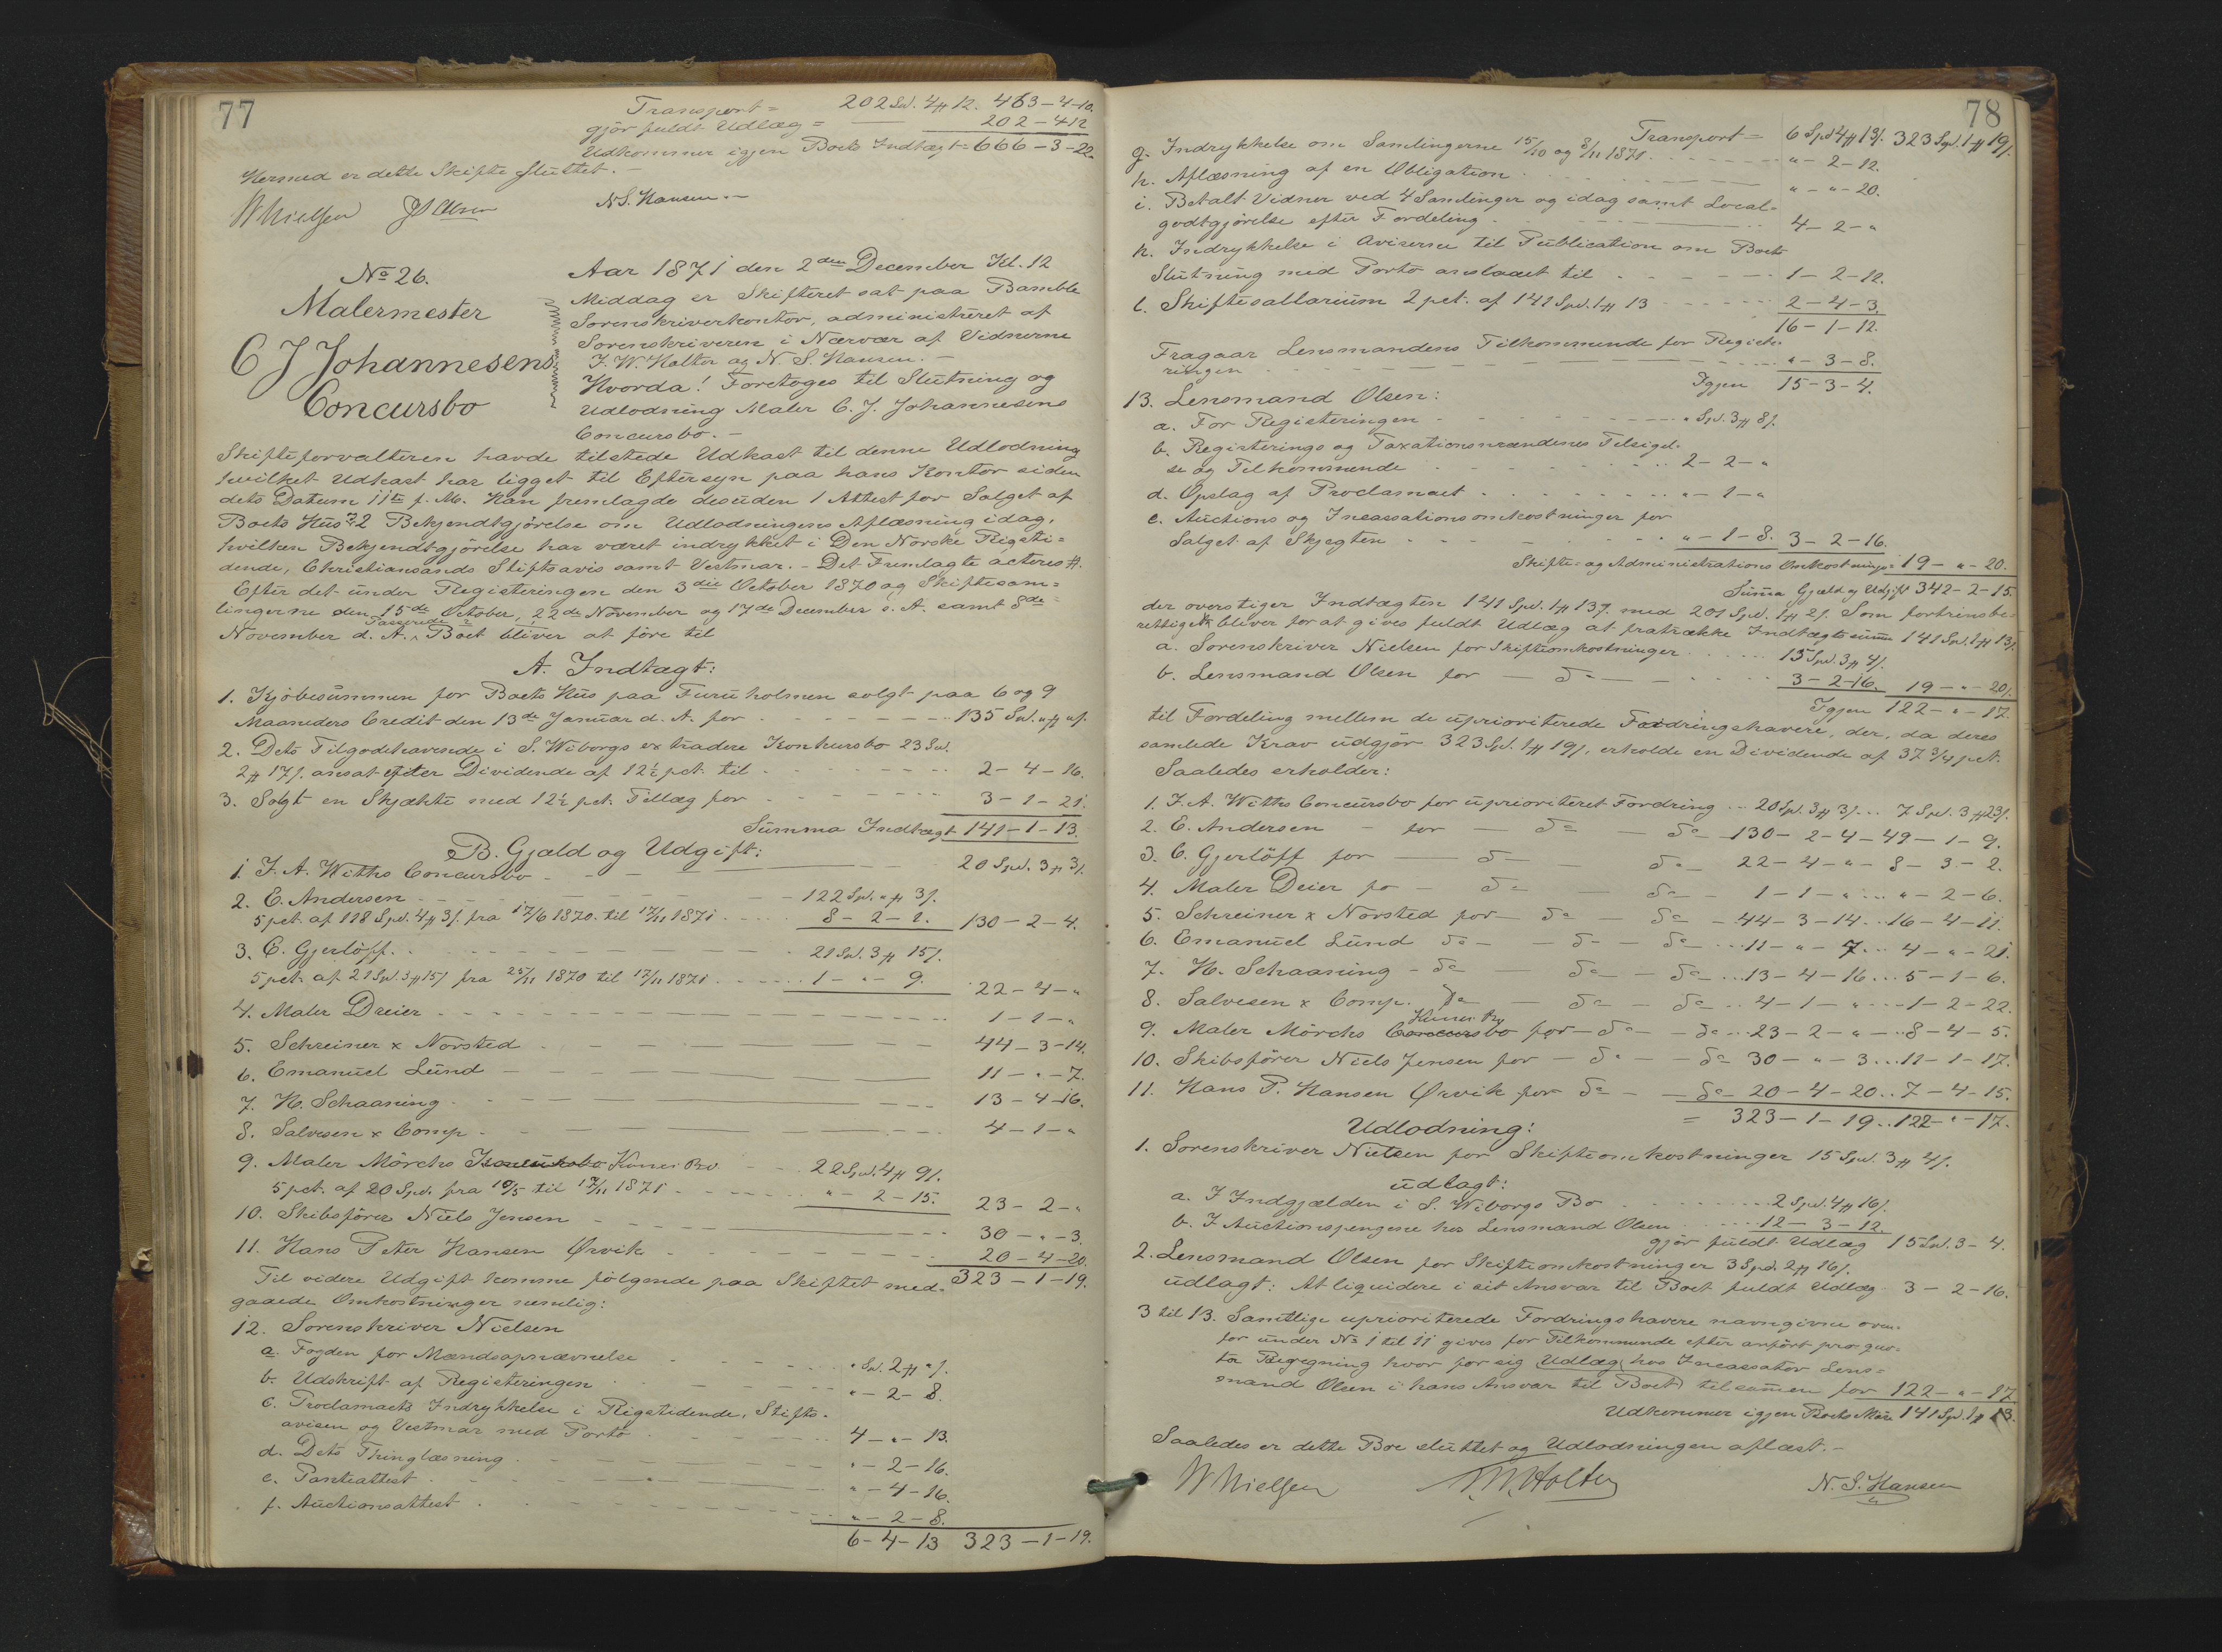 77
Transport = 202 Spd. 4 # 12. 463-4-10.
gjør fuldt Udlæg = — 202-4-12
Udkommer igjen Boets Indtægt = 666-3-22.
Hermed er dette Skifte sluttet. -
WNielsen JS Olsen N.S. Hansen. -
No 26.
Malermester
C J Johannesens
Concursbo
Aar 1871 den 2den December Kl. 12
Middag er Skifteret sat paa Bamble
Sorenskriverkontor, administreret af
Sorenskriveren i Nærvær af Vidnerne
J. W. Holter og N. S. Hansen. -
Hvorda! Foretoges til Slutning og
Udlodning Maler C. J. Johannesens
Concursbo. -
Skifteforvalteren havde tilstede Udkast til denne Udlodning
hvilket Udkast har ligget til Eftersyn paa hans Kontor siden
dets Datum 11te f. M. Han fremlagde desuden 1 Attest for Salget af
Boets Hus, 2 Bekjendtgjörelse om Udlodningens Aflæsning idag,
hvilken Bekjendtgjörelse har været indrykket i Den Norske Rigsti=
dende, Christiansands Stiftsavis samt Vestmar. - Det Fremlagte acteres #.
Efter det under Registeringen den 3die October 1870 og Skiftesam=
lingerne den 15de October, 22de November og 17de December s. A. samt 8de
November d. A. Passerede Boet bliver at före til
A. Indtægt:
1. Kjöbesummen for Boets Hus paa Furuholmen solgt paa 6 og 9
Maaneders Credit den 13de Januar d. A. for 135 Spd. " # " ſ.
2. Dets Tilgodehavende i S. Wiborgs extradere Konkursbo 23 Spd.
2 # 17 ſ. ansat efter Dividende af 12½ pct. til 2-4-16.
3. Solgt en Skjækte med 12½ pct. Tillæg for 3-1-21.
Summa Indtægt 141-1-13.
B. Gjæld og Udgift:
1. J. A. Withs Concursbo - 20 Spd. 3 # 3 ſ.
2. E. Andersen - 122 Spd. " # 3 ſ.
5 pct. af 118 Spd. 4 # 3 ſ. fra 17/6 1870 til 17/11 1871 8-2-1. 130-2-4.
3. C. Gjerlöff. 21 Spd. 3 # 15 ſ.
5 pct. af 21 Spd. 3 # 15 ſ fra 25/11 1870 til 17/11 1871 1-"-9. 22-4-"
4. Maler Dreier 1-1-"
5. Schreiner & Norsted 44-3-14.
6. Emanuel Lund 11-"-7.
7. H. Schaaning 13-4-16.
8. Salvesen & Comp 4-1-"
9. Maler Mörchs Konkursbo 22 Spd. 4 # 9 ſ.
5 pct. af 20 Spd. fra 10/5 til 17/11 1871 "-2-15. 23-2-"
10. Skibsförer Niels Jensen 30-"-3.
11. Hans Peter Hansen Ørvik 20-4-20.
Til videre Udgift komme følgende paa Skiftet med= 323-1-19.
gaaede Omkostninger nemlig:
12. Sorenskriver Nielsen
a. Fogden for Mændsopnævnelse " Spd. 2 # " ſ.
b. Udskrift af Registeringen "-2-8.
c. Proclamaets Indrykkelse i Rigstidende, Stifts=
avisen og Vestmar med Porto 4-"-13.
d. Dets Thinglæsning "-2-16.
e. Panteattest "-4-16.
f. Auctionsattest "-2-8.
6-4-13 323-1-19.
78
Transport = 6 Spd 4 # 13 ſ. 323 Spd. 1 # 19 ſ.
g. Indrykkelse om Samlingerne 15/10 og 8/11 1871 "-2-12.
h. Aflæsning af en Obligation "-"-20.
i. Betalt Vidner ved 4 Samlinger og idag samt Local=
godtgjörelse efter Fordeling 4-2-"
k. Indrykkelse i Aviserne til Publication om Boets
Slutning med Porto anslaaet til 1-2-12.
l. Skiftesallarium 2 pct. af 141 Spd. 1 # 13 2-4-3.
16-1-12.
Fragaar Lensmandens Tilkommende for Registe=
ringen "-3-8.
Igjen 15-3-4.
13. Lensmand Olsen:
a. For Registeringen " Spd. 3 # 8 ſ.
b. Registerings og Taxationsmændenes Tilsigel=
se og Tilkommende 2-2-"
d. Opslag af Proclamaet "-1-"
e. Auctions og Incassationsomkostninger for
Salget af Skjægten "-1-8. 3-2-16.
Skifte= og Administrations Omkostninger = 19-"-20.
Summa Gjæld og Udgift 342-2-15.
der overstiger Indtægten 141 Spd. 1 # 13 ſ. med 201 Spd. 1 # 2 ſ. Som fortrinsbe=
rettiget bliver for at gives fuldt Udlæg at fratrække Indtægts summa 141 Spd. 1 # 13 ſ.
a. Sorenskriver Nielsen for Skifteomkostninger 15 Spd. 3 # 4 ſ.
b. Lensmand Olsen for — do — 3-2-16. 19-"-20 ſ.
Igjen 122-"-17.
til Fordeling mellem de uprioriterede Fordringshavere, der, da deres
samlede Krav udgjör 323 Spd. 1 # 19 ſ, erholde en Dividende af 37¾ pct.
Saaledes erholder:
1. J. A. Withs Concursbo for uprioriteret Fordring 20 Spd. 3 # 3 ſ... 7 Spd. 3 # 23 ſ.
2. E. Andersen - for — do — do 130-2-4-49-1-9.
3. C. Gjerlöff for — do — do 22-4-"-8-3-2.
4. Maler Dreier fo - do — do - 1-1-"..."-2-6.
5. Schreiner & Norsted for - do - do - 44-3-14..16-4-11.
6. Emanuel Lund do - do - do ...11-"-7...4-"-21.
7. H. Schaaning - do - do - do ...13-4-16...5-1-6.
8. Salvesen & Comp. do - do - do .. 4-1-"....1-2-22.
9. Maler Mörchs Concursbo for - do - do ...23-2-"-..8-4-5.
10. Skibsförer Niels Jensen for - do - do 30-"-3...11-1-17.
11. Hans P. Hansen Ørvik for do - do 20-4-20..7-4-15.
= 323-1-19..122-"-17.
Udlodning:
1. Sorenskriver Nielsen for Skifteomkostninger 15 Spd. 3 # 4 ſ.
udlagt:
a. I Indgjælden i S. Wiborgs Bo 2 Spd. 4 # 16 ſ.
b. I Auctionspengene hos Lensmand Olsen 12-3-12.
gjør fuldt Udlæg 15 Spd. 3-4.
2. Lensmand Olsen for Skifteomkostninger 3 Spd. 2 # 16 ſ.
udlagt: At liquidere i sit Ansvar til Boet fuldt Udlæg 3-2-16.
3 til 13. Samtlige uprioriterede Fordringshavere navngivne oven=
for under No 1 til 11 gives for Tilkommende efter anfört pro quo=
ta Beregning hver for sig Udlæg (hos Incassator Lens=
mand Olsen i hans Ansvar til Boet) tilsammen for 122-"-17.
Udkommer igjen Boets Masse 141 Spd. 1 # 13.
Saaledes er dette Boe sluttet og Udlodningen aflæst. -
WNielsen J.W. Holter N. S. Hansen